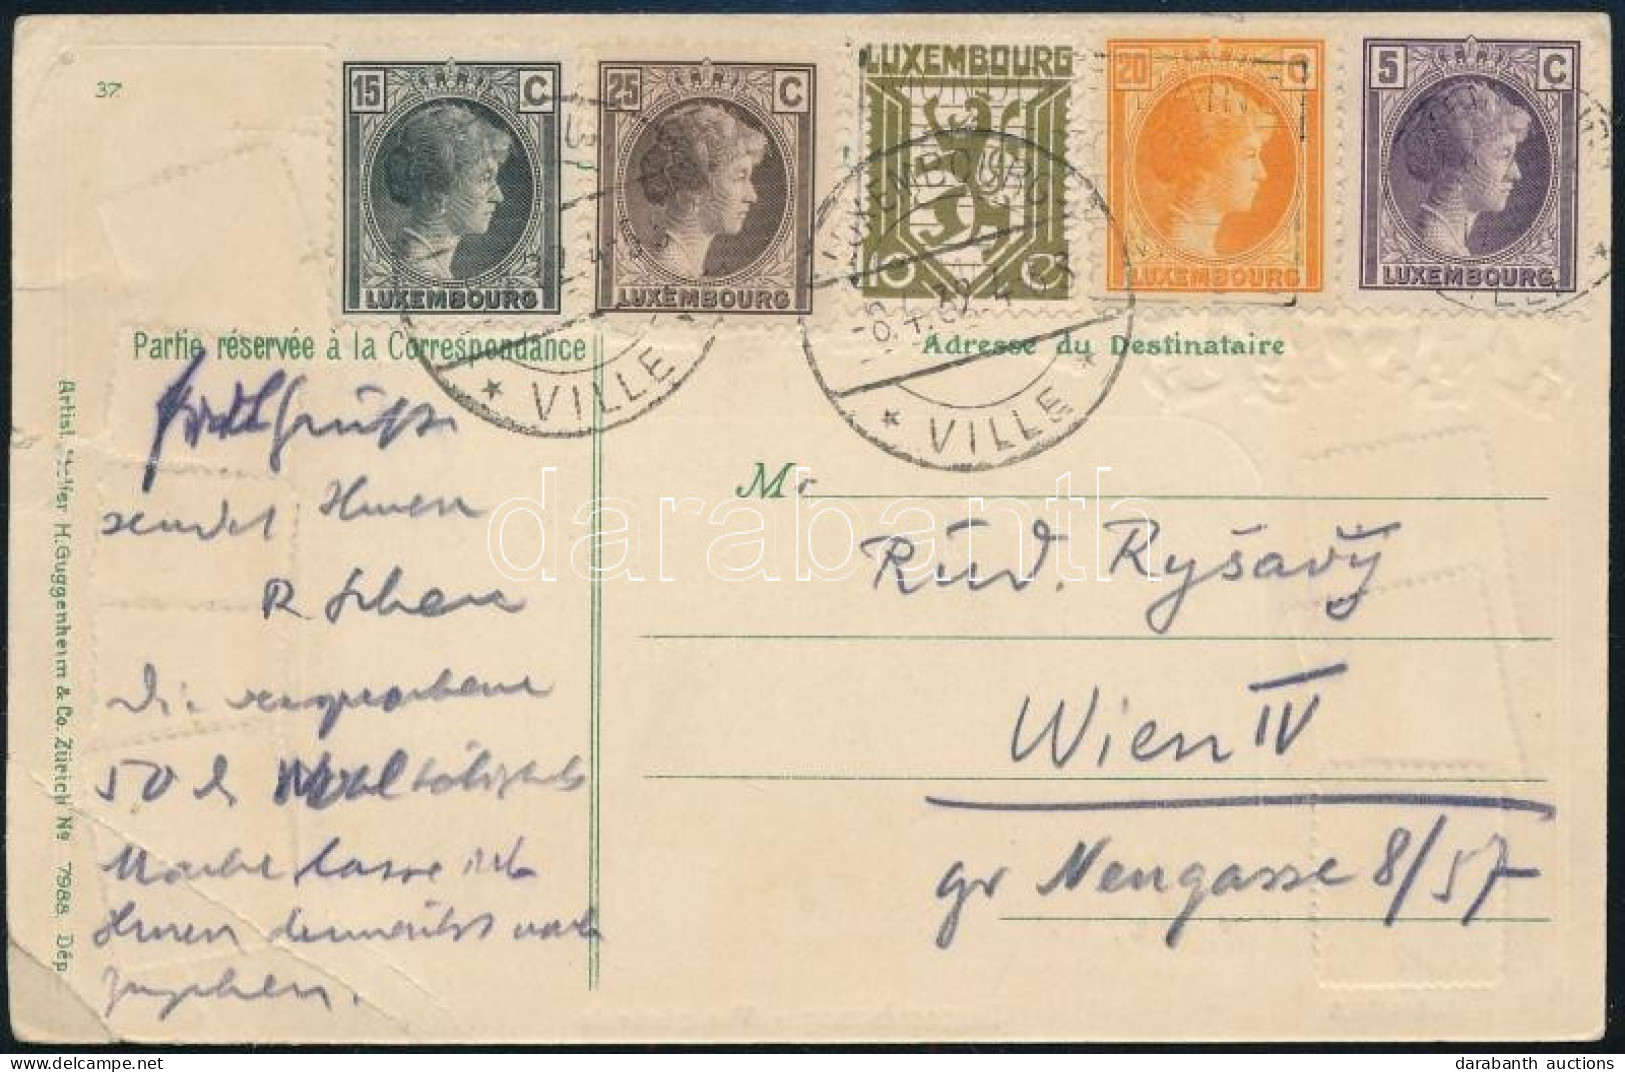 37.
15 C
LUXEMBOURG
25 C
LUXEMBOURG
LUXEMBOURG
10 C
20 C
LUXEMBOURG
5 C
LUXEMBOURG
LUXEMBOURG
★ VILLE
LUXEMBOURG
★ VILLE ★
Partie réservée à la Correspondance
Adresse du Destinataire
sendet Ihnen
Die versprochene
50 h
Marke lasse ich
Ihnen demnächst noch
zugehen.
Mr
Rud. Ryšavý
Wien IV
gr Neugasse 8/57
H. Guggenheim & Co. Zürich No 7988 Dép
darabanth
darabanth auctions